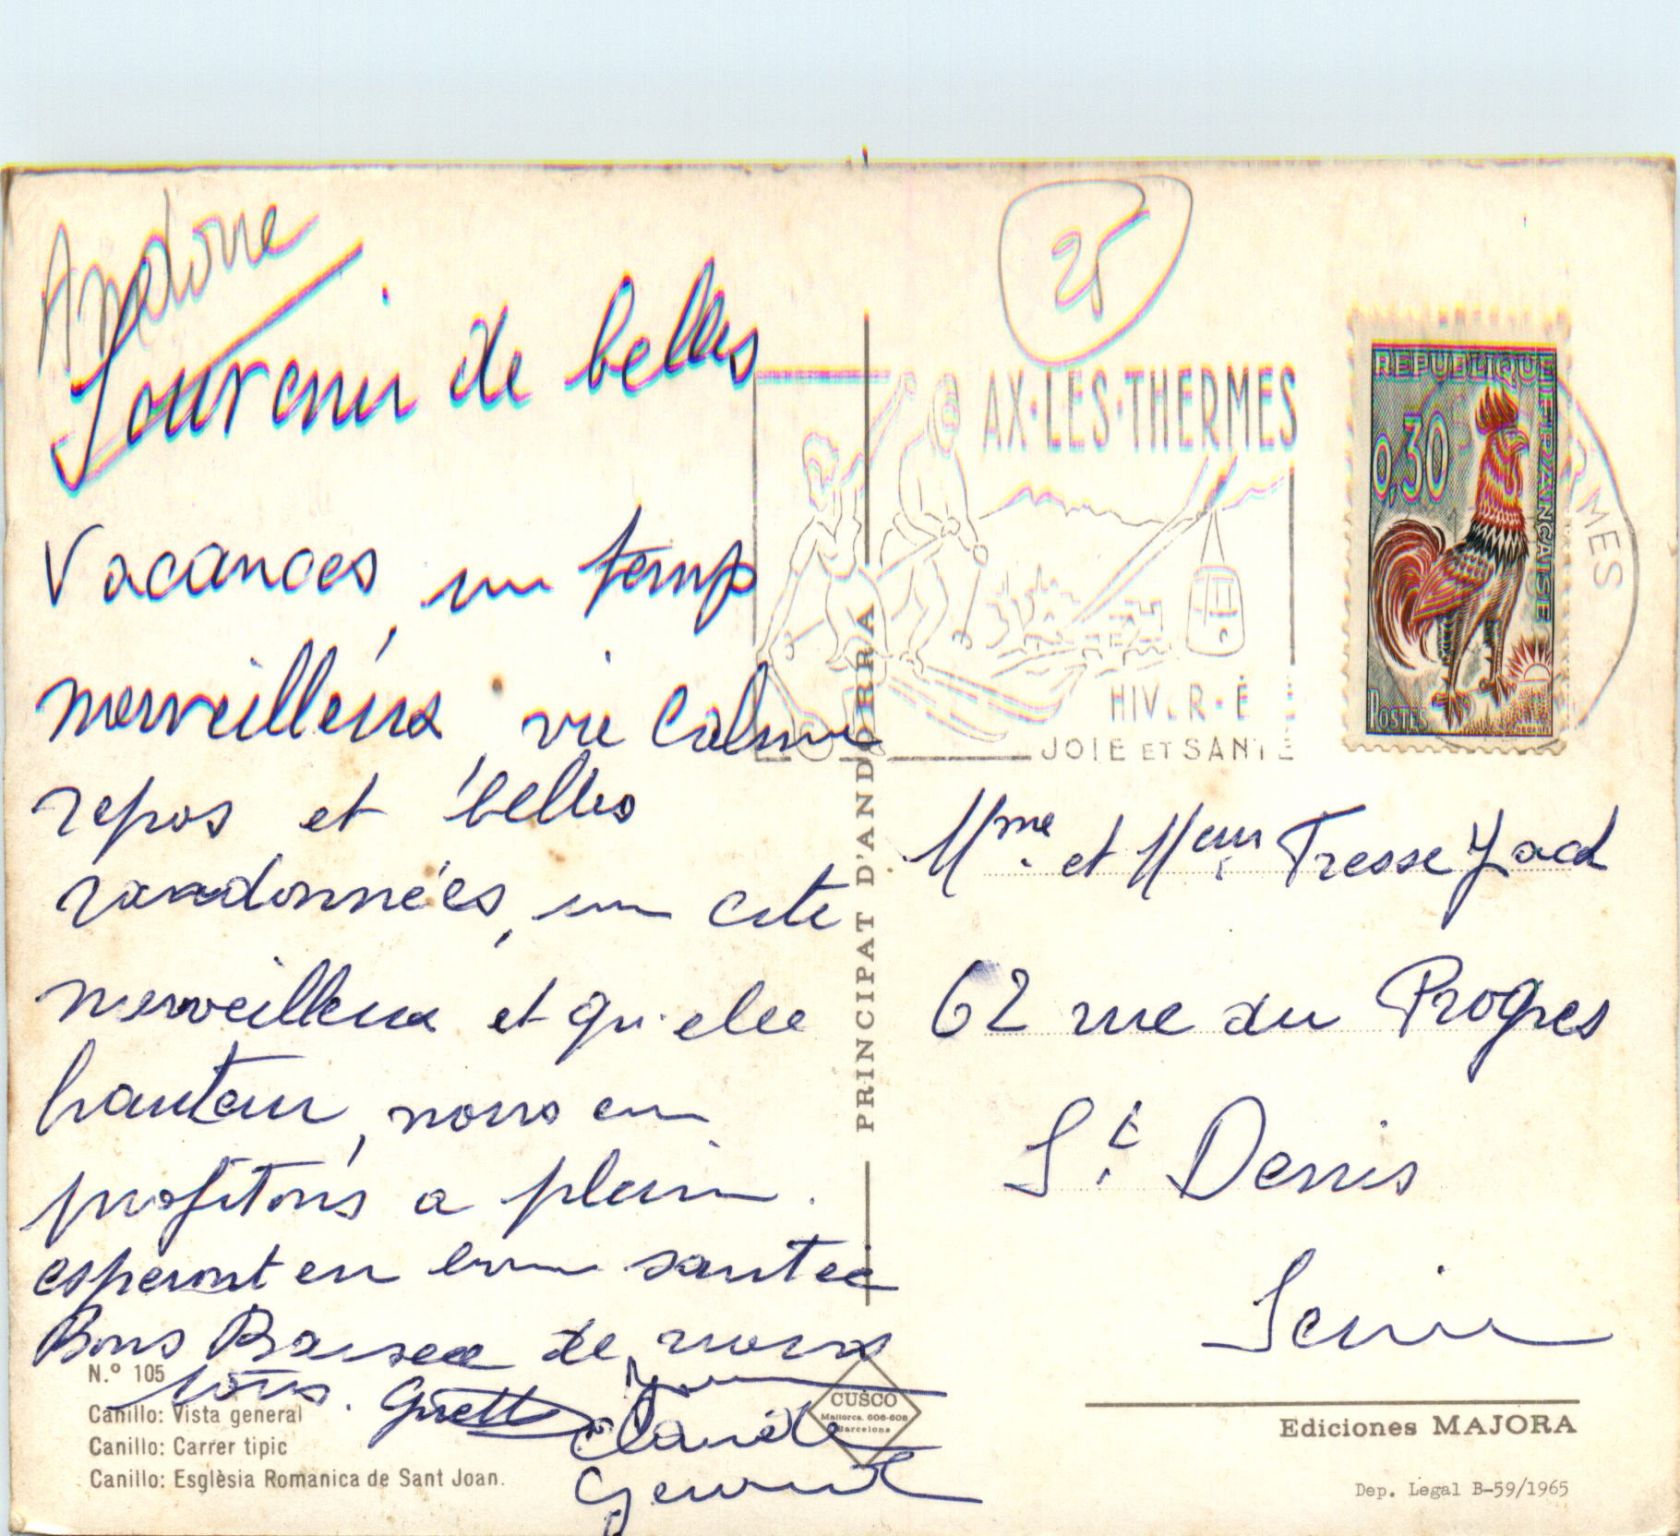 Andorre
Souvenir de belles
Vacances, un temps
merveilleux, vie calme
repos et belles
randonnées, un cite
merveilleux et qu'elle
hauteur, nous en
profitons a plein.
esperant en bonne santée
Bons Baisee de nous
tous. Ginette
Claude
N.º 105
Canillo: Vista general
Canillo: Carrer tipic
Canillo: Esglèsia Romanica de Sant Joan.
PRINCIPAT D'ANDORRA
CUSCO
Mallorca, 606-608
Barcelona
25
AX-LES-THERMES
HIV.R-É
JOIE ET SANTÉ
REPUBLIQUE FRANÇAISE
0,30
POSTES
RMES
Mme et Meur Tresse Jack
62 rue du Progres
St Denis
Seine
Ediciones MAJORA
Dep. Legal B-59/1965